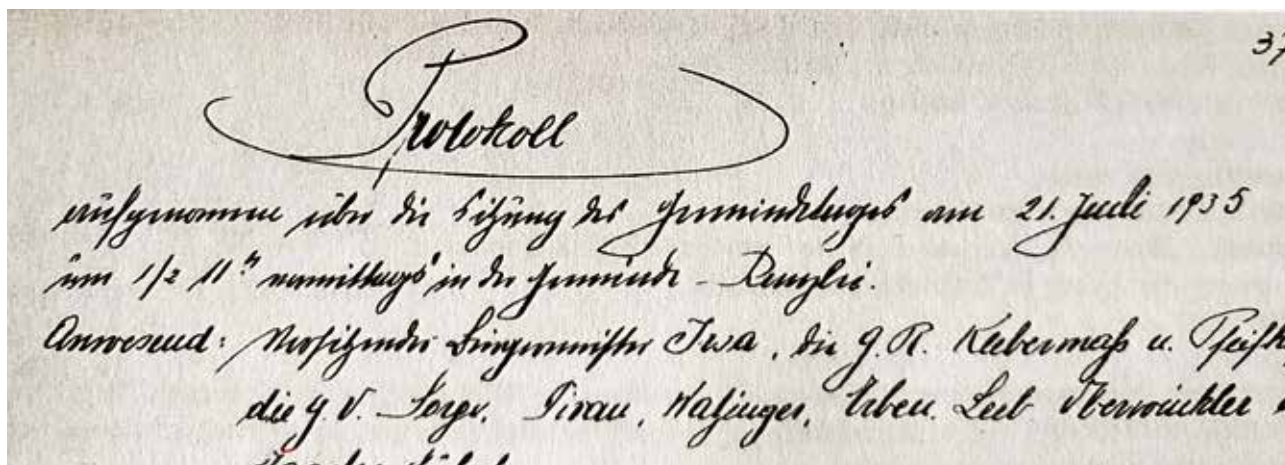 37
Protokoll
aufgenommen über die Sitzung des Gemeindetages am 21. Juli 1935
um 1/2 11 h vormittags in der Gemeinde-Kanzlei.
Anwesend: Vorsitzender Bürgermeister Iwa, die G.R. Klebermaß u.
die G.V. Sorge, Tirau, Watzinger, Urben, Leeb